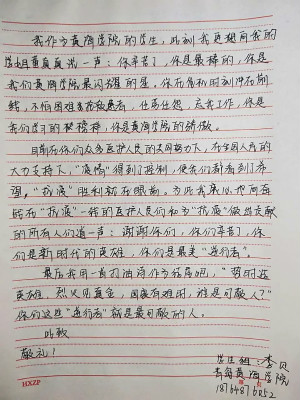 我作为黄海学院的学生，此刻我更想向我的
学姐黄真真说一声：你辛苦了，你是最棒的，你是
我们黄海学院最闪耀的星。你在危机时刻冲在前
线，不怕困难去救治患者，任劳任怨，忘我工作，你是
我们学习的好榜样，你是黄海学院的骄傲。
目前在你们众多医护人员的共同努力下，在全国人民的
大力支持下，"疫情"得到了控制，使我们都看到了希
望，"抗疫"胜利就在眼前。为此我要以向奋
战在"抗疫"一线的医护人员们和为"抗疫"做出贡献
的所有人们道一声：谢谢你们，你们辛苦了，你
们是新时代的英雄，你们是最美"逆行者"。
最后我用一首打油诗作为结尾吧，"时时造
英雄，烈火见真金，国家有难时，谁是可敬人？"
你们这些"逆行者"就是最可敬的人。
此致
敬礼！
学生：李贝
青岛黄海学院
HXZP